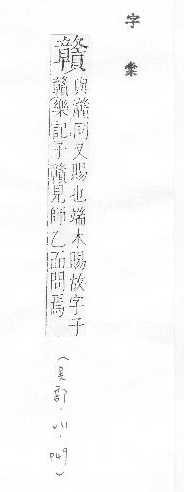 字彙
贛
與贑同又賜也端木賜故字子
贛樂記子贛見師乙而問焉
(貝部·VII·049)